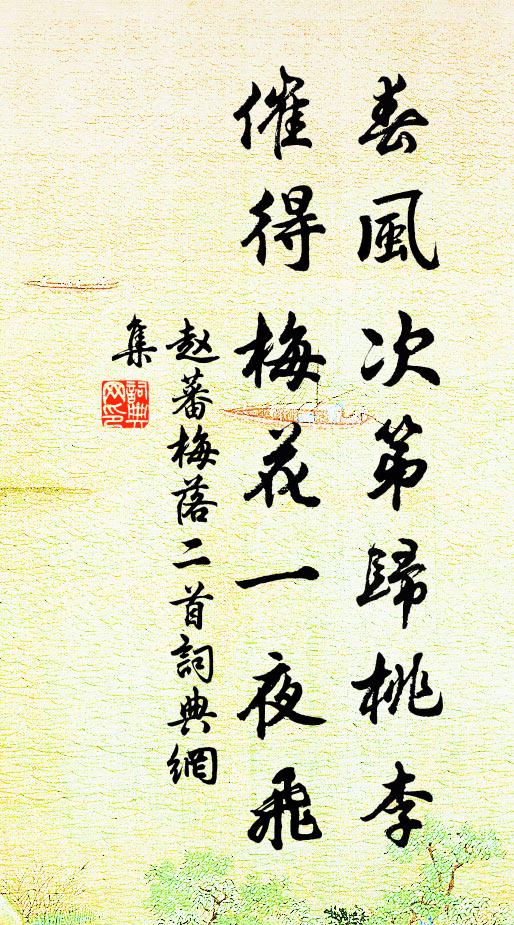 春風次第歸桃李
催得梅花一夜飛
赵蕃梅落二首詞典網
集
詞典
网印